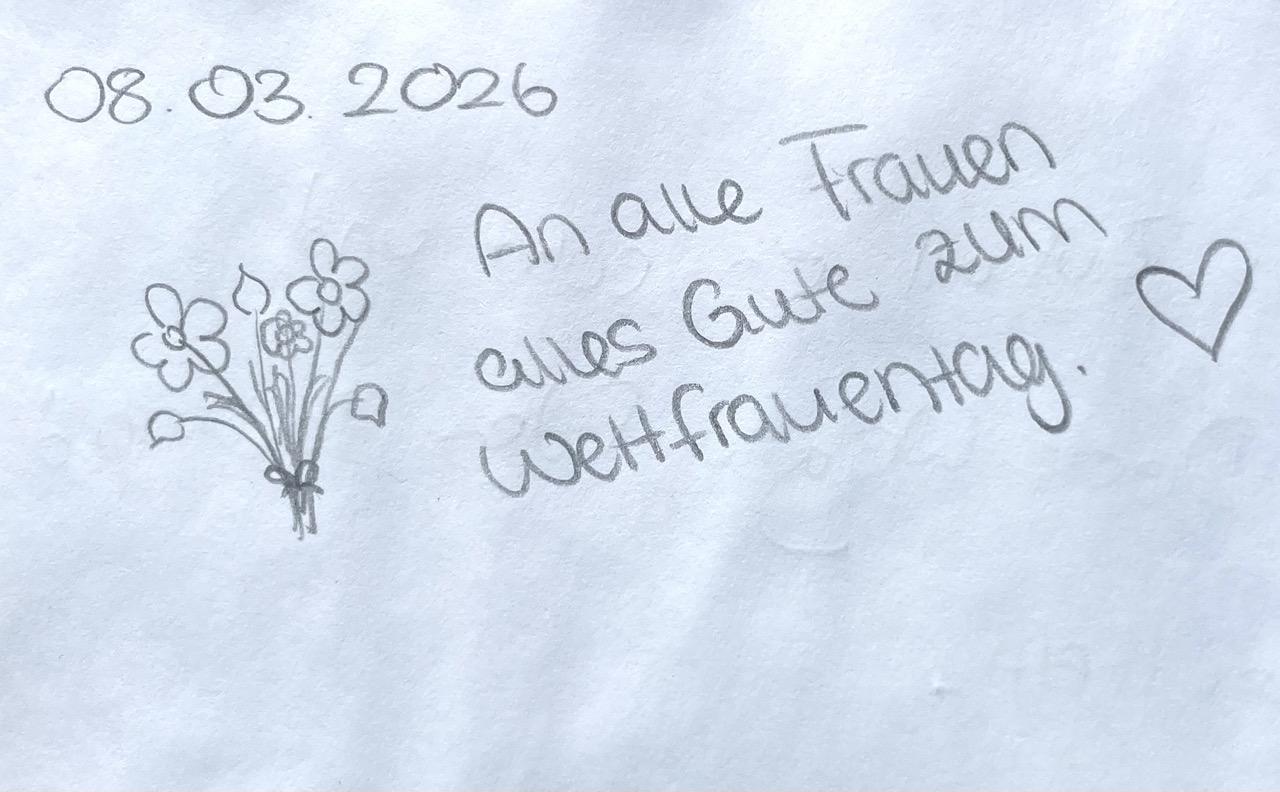 08.03.2026
An alle Frauen
alles Gute zum
Weltfrauentag.